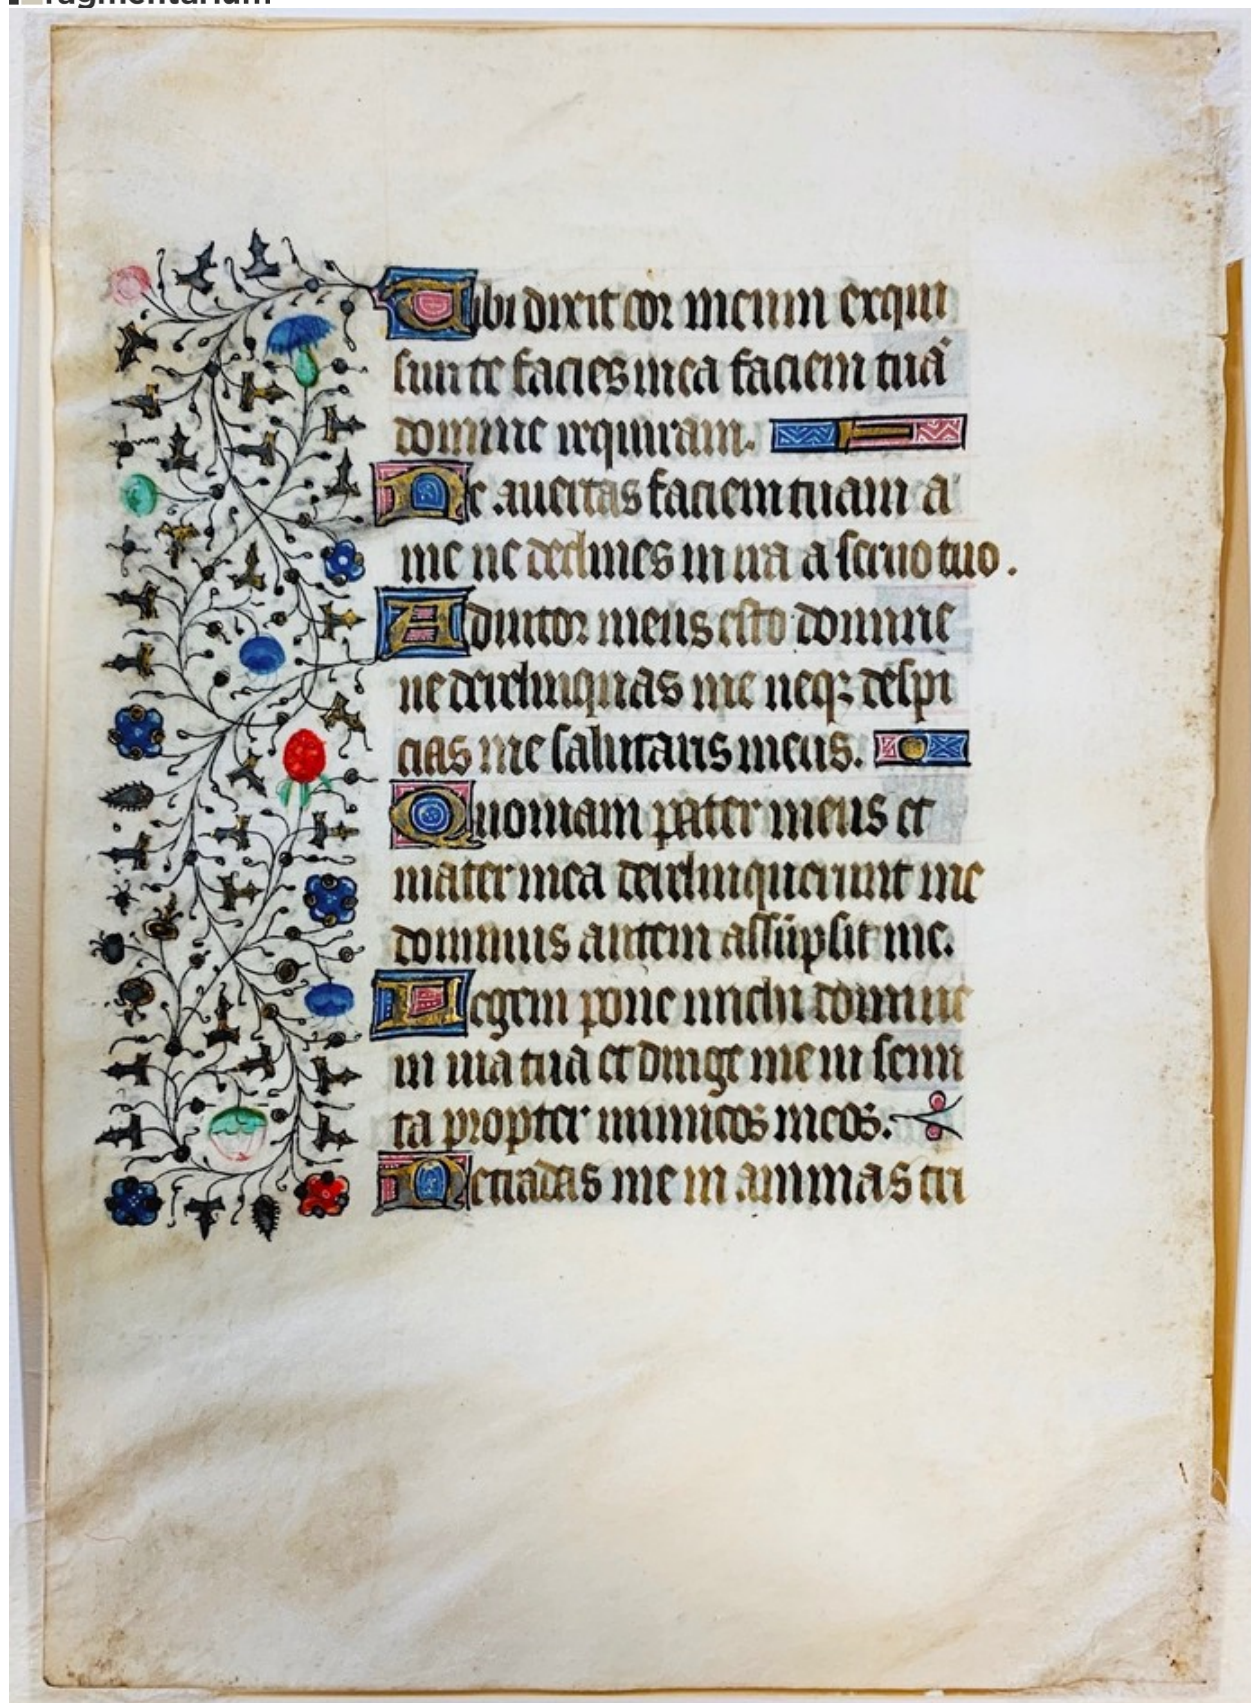 fragmentarium
Tibi dixit cor meum exqui
siuit te facies mea faciem tuā
domine requiram.
Ne auertas faciem tuam a
me ne declines in ira a seruo tuo.
Adiutor meus esto domine
ne derelinquas me neqꝫ despi
cias me salutaris meus.
Quoniam pater meus et
mater mea derelinquerunt me
dominus autem assūpsit me.
Legem pone michi domine
in uia tua et dirige me in semi
ta propter inimicos meos.
Ne tradas me in animas tri